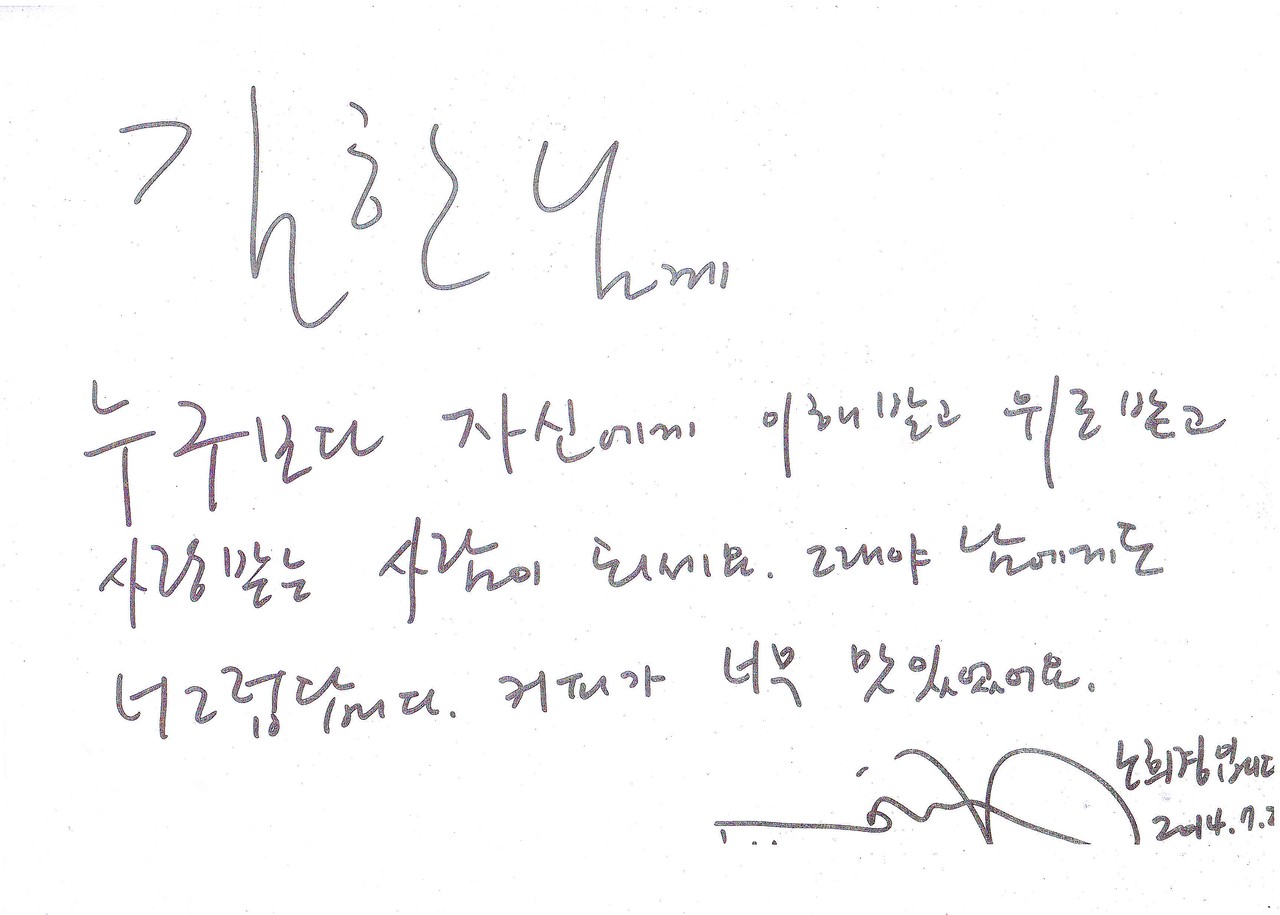 김현님께
누구보다 자신에게 이해받고 위로받고
사랑받는 사람이 되세요. 그래야 남에게도
너그럽답니다. 커피가 너무 맛있었어요.
노희경입니다
2014.7.